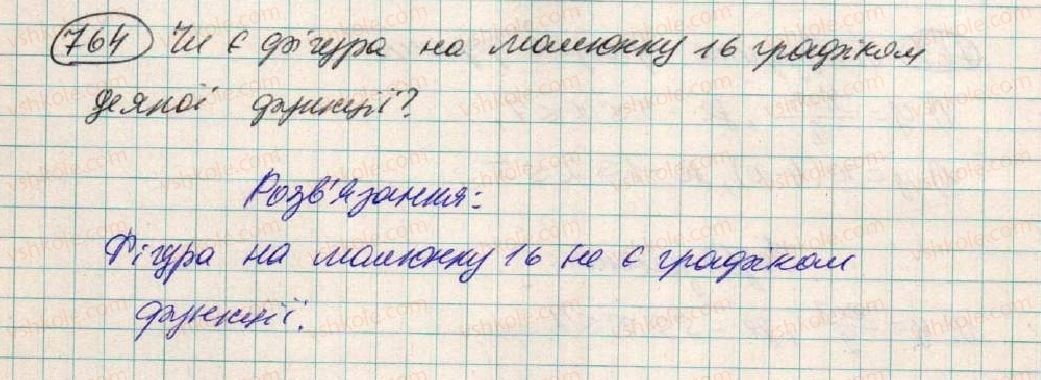 764 Чи є фігура на малюнку 16 графіком
деякої функції?
Розв'язання:
Фігура на малюнку 16 не є графіком
функції.